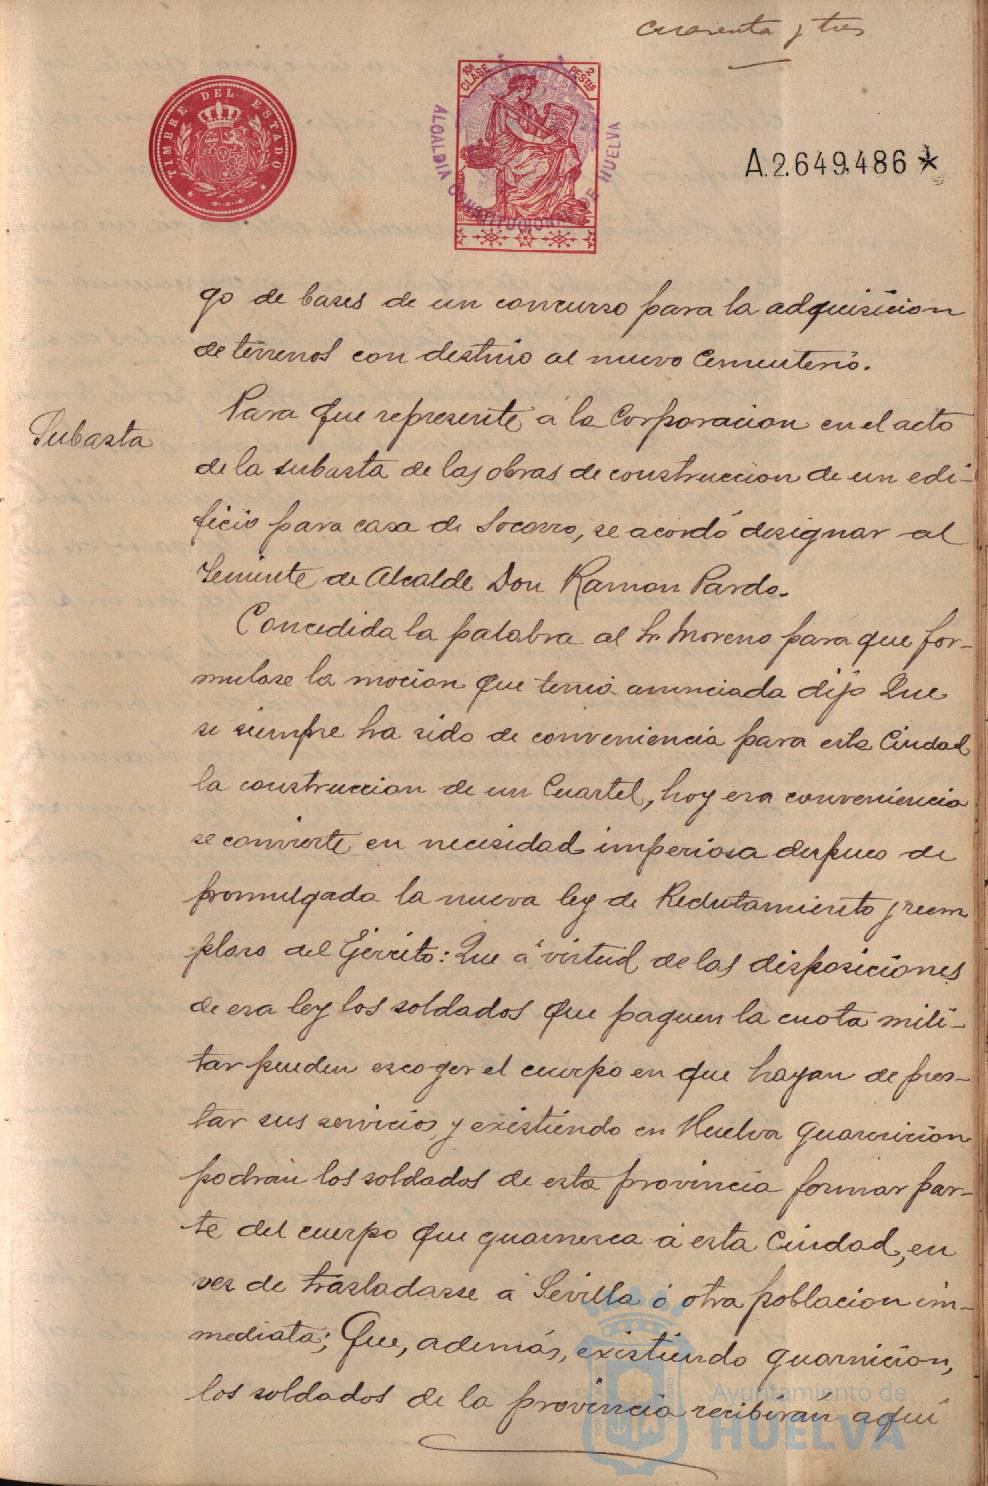 cuarenta y tres
TIMBRE DEL ESTADO
10ª CLASE
2 PESTAS
ALCALDIA CONSTITUCIONAL DE HUELVA
A.2.649.486 *
go de bases de un concurso para la adquisicion
de terrenos con destino al nuevo Cementerio.
Subasta
Para que represente á la Corporacion en el acto
de la subasta de las obras de construccion de un edi-
ficio para casa de Socorro, se acordó designar al
Teniente de Alcalde Don Ramon Pardo.
Concedida la palabra al Sr. Moreno para que for-
mulase la mocion que tenia anunciada dijo Que
si siempre ha sido de conveniencia para esta Ciudad
la construccion de un Cuartel, hoy esa conveniencia
se convierte en necesidad imperiosa despues de
promulgada la nueva ley de Reclutamiento y reem
plaso del Ejército: Que á virtud de las disposiciones
de esa ley los soldados que paguen la cuota mili-
tar pueden escoger el cuerpo en que hayan de pres-
tar sus servicios y existiendo en Huelva guarnicion
podrán los soldados de esta provincia formar par-
te del cuerpo que guarnesca á esta Ciudad, en
ves de trasladarse á Sevilla ó otra poblacion in-
mediata; Que, además, existiendo guarnicion,
los soldados de la provincia recibirán aquí
Ayuntamiento de
HUELVA